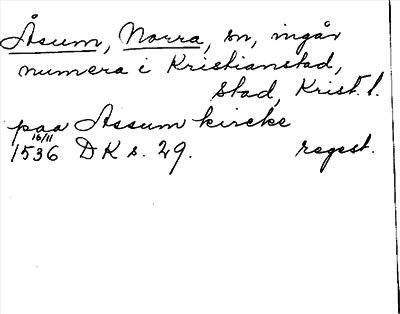 Åsum, Norra, sn, ingår
numera i Kristianstad,
stad, Krist. l.
paa Assum kircke
16/11
1536 DK s. 29. regest.